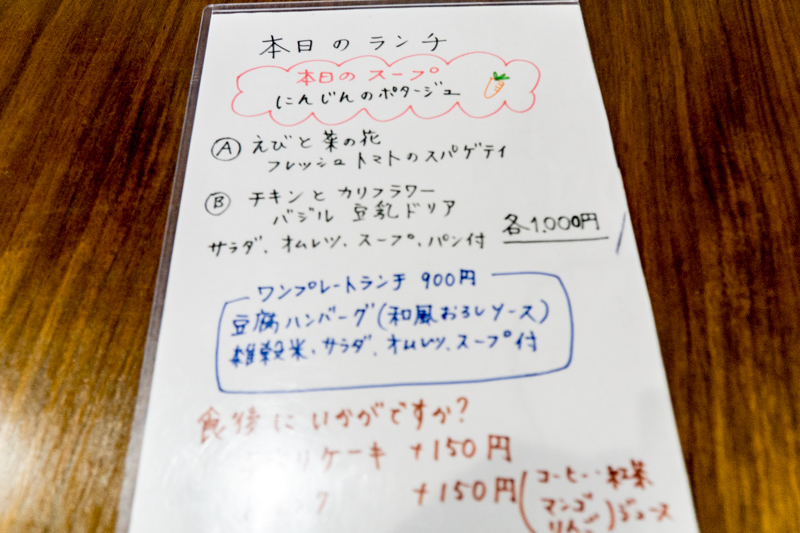 本日のランチ
本日のスープ
にんじんのポタージュ
Ⓐ えびと菜の花
フレッシュトマトのスパゲティ
Ⓑ チキンとカリフラワー
バジル 豆乳ドリア
サラダ、オムレツ、スープ、パン付 各1,000円
ワンプレートランチ 900円
豆腐ハンバーグ(和風おろしソース)
雑穀米、サラダ、オムレツ、スープ付
食後にいかがですか?
ケーキ +150円
+150円 (コーヒー・紅茶
マンゴ
りんご)ジュース